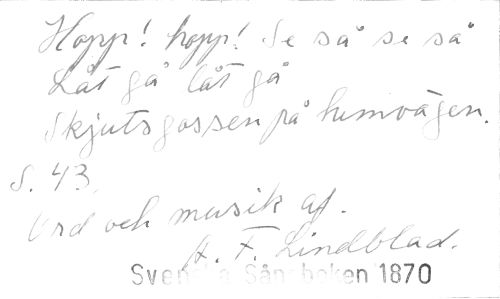 Hopp! hopp! Se så se så
Låt gå låt gå
Skjutsgossen på hemvägen.
S. 43.
Ord och musik af.
A. F. Lindblad.
Svenska Sångboken 1870